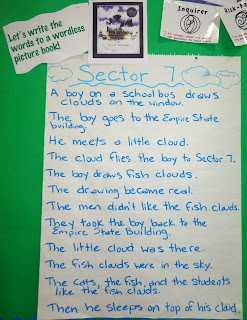 Let's write the
words to a wordless
picture book!
Inquirer
Risk-t
Sector 7
A boy on a school bus draws
clouds on the window.
The boy goes to the Empire State
building.
He meets a little cloud.
The cloud flies the boy to Sector 7.
The boy draws fish clouds.
The drawing became real.
The men didn't like the fish clouds.
They took the boy back to the
Empire State Building.
The little cloud was there.
The fish clouds were in the sky.
The cats, the fish, and the students
like the fish clouds.
Then he sleeps on top of his cloud.